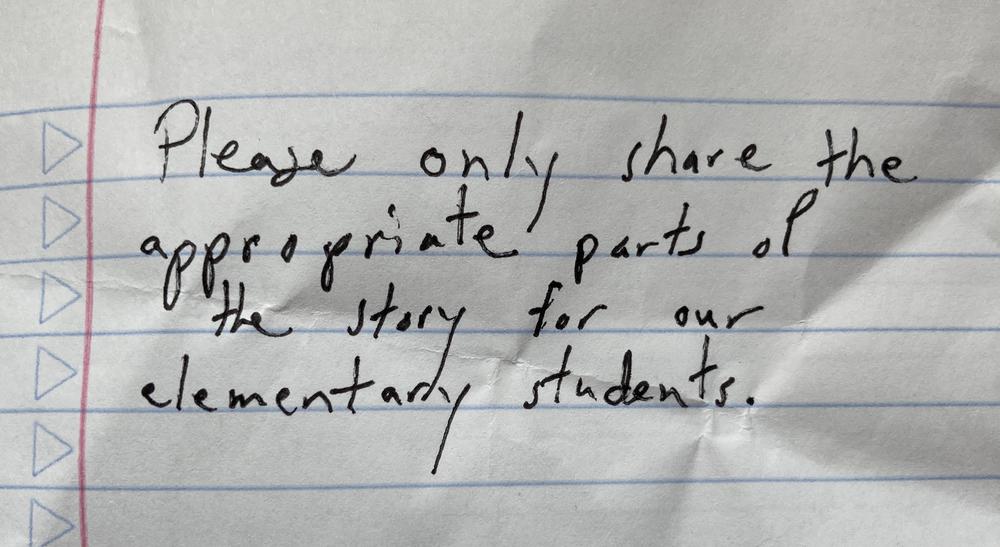 Please only share the
appropriate parts of
the story for our
elementary students.